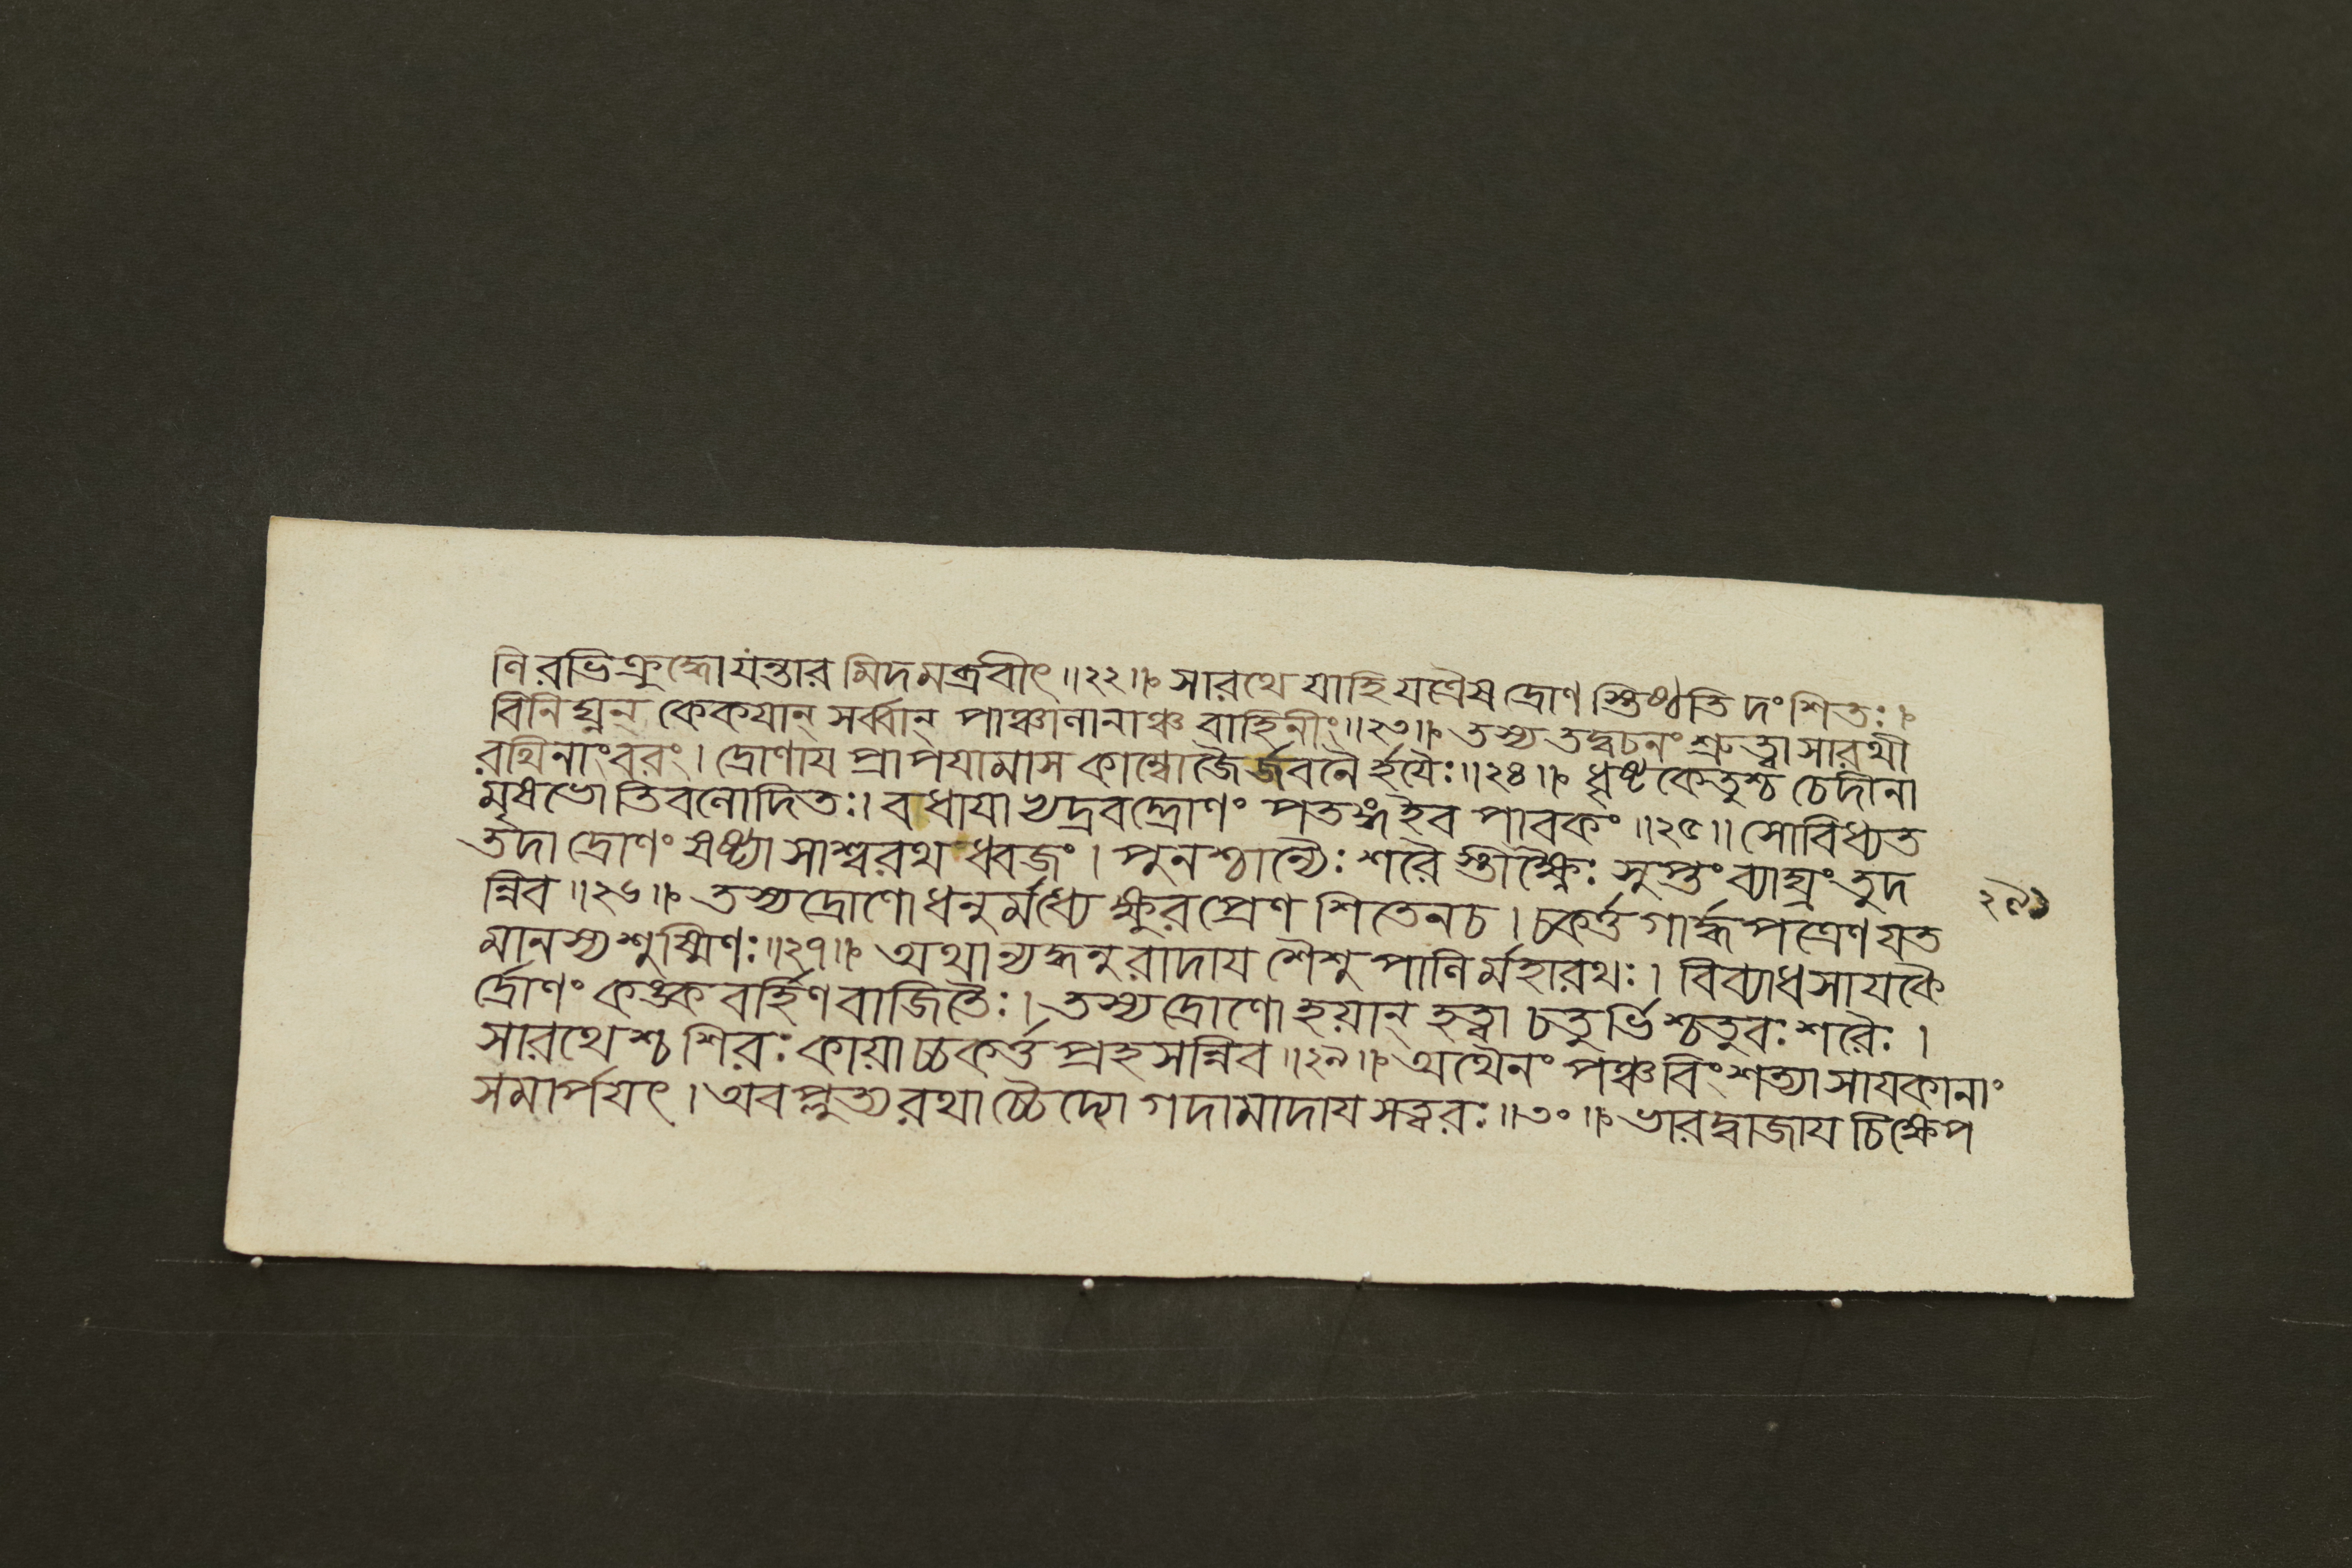 ণিরভিক্রুদ্ধো যন্তারমিদমব্রবীৎ॥২২॥ সারথে যাহি যত্রৈষ দ্রোণ স্তিষ্ঠতি দংশিতঃ।
বিনিঘ্নন্ কেকযান্ সর্ব্বান্ পাঞ্চালানাঞ্চ বাহিনীং॥২৩॥ তস্য তদ্বচনং শ্রুত্বা সারথী
রথিনাংবরং। দ্রোণায প্রাপযামাস কাম্বোজৈর্জবনৈ র্হযৈঃ॥২৪॥ ধৃষ্টকেতুশ্চ চেদীনা
মৃষভোতিবলোদিতঃ। বধাযাভ্যদ্রবদ্দ্রোণং পতঙ্গইব পাবকং॥২৫॥ সোবিধ্যত
তদা দ্রোণং ষষ্ট্যা সাশ্বরথ ধ্বজং। পুনশ্চান্যৈঃ শরৈ স্তীক্ষ্ণৈঃ সুপ্তং ব্যাঘ্রং তুদ
ন্নিব॥২৬॥ তস্য দ্রোণো ধনুর্মধ্যে ক্ষুরপ্রেণ শিতেনচ। চকর্ত্ত গার্দ্ধপত্রেণ যত
মানস্য শুষ্মিণঃ॥২৭॥ অথান্যদ্ধনুরাদায শৈশুপালির্মহারথঃ। বিব্যাধ সাযকৈ
র্দ্রোণং কঙ্ক বর্হিণ বাজিতৈঃ। তস্য দ্রোণো হয়ান্ হত্বা চতুর্ভিশ্চতুরঃ শরৈঃ।
সারথেশ্চ শিরঃ কায়াচ্চকর্ত্ত প্রহসন্নিব॥২৯॥ অথৈনং পঞ্চবিংশত্যা সাযকানাং
সমার্পযৎ। অবপ্লুত্য রথাচ্চৈদ্যো গদামাদায সত্বরঃ॥৩০॥ ভারদ্বাজায চিক্ষেপ